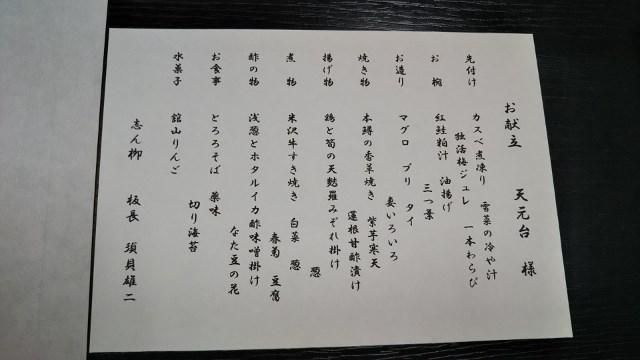 お献立　天元台　様
先付け　カスベ煮凍り　雪菜の冷や汁
独活梅ジュレ　一本わらび
お椀　紅鮭粕汁　油揚げ
三つ葉
お造り　マグロ　ブリ　タイ
妻いろいろ
焼き物　本鱒の香草焼き　紫芋寒天
蓮根甘酢漬け
揚げ物　鶏と筍の天麩羅みぞれ掛け
葱
煮物　米沢牛すき焼き　白菜　葱
春菊　豆腐
酢の物　浅葱とホタルイカ酢味噌掛け
なた豆の花
お食事　とろろそば　薬味
切り海苔
水菓子　舘山りんご
志ん柳　板長　須貝雄二